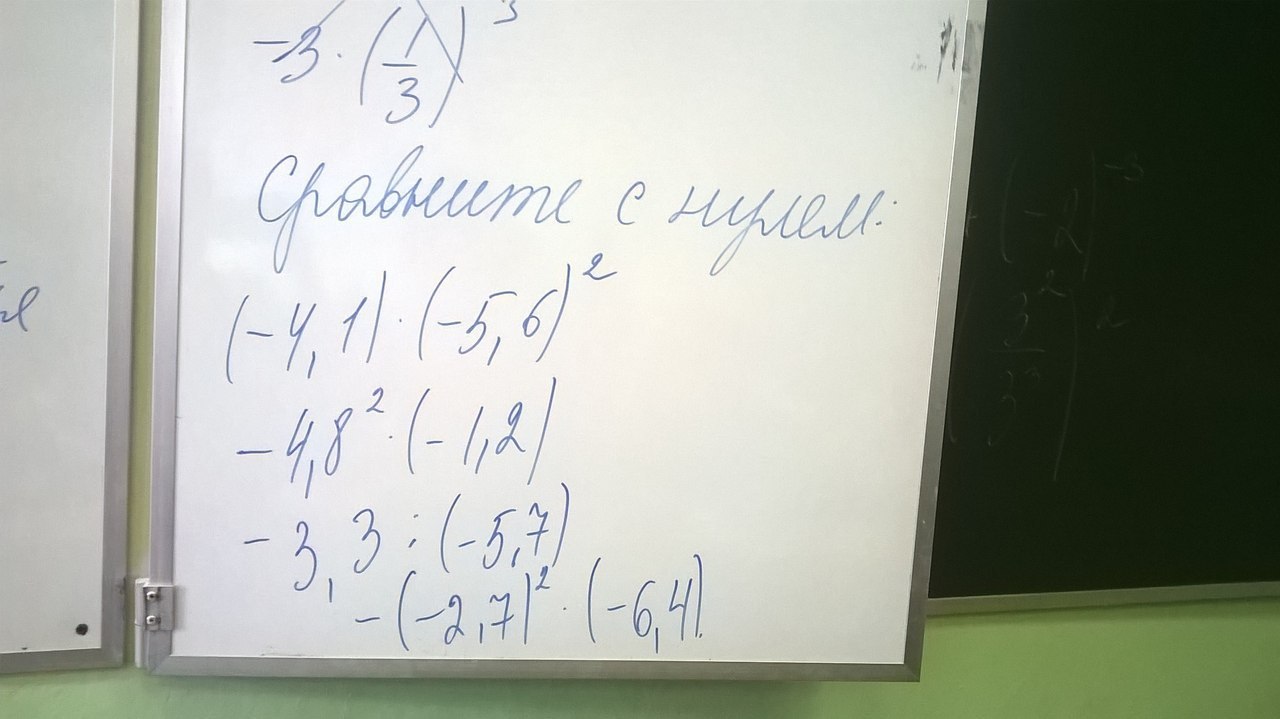 -3 · (1/3)³
Сравните с нулем:
(-4,1) · (-5,6)²
-4,8² · (-1,2)
-3,3 : (-5,7)
-(-2,7)² · (-6,4)